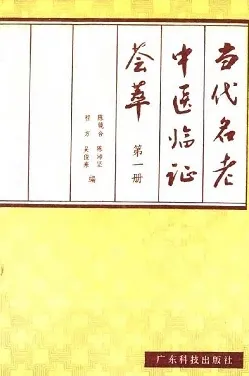 当代名老
中医临证
荟萃 第一册
陈镜合 陈沛坚
程方
编
广东科技出版社